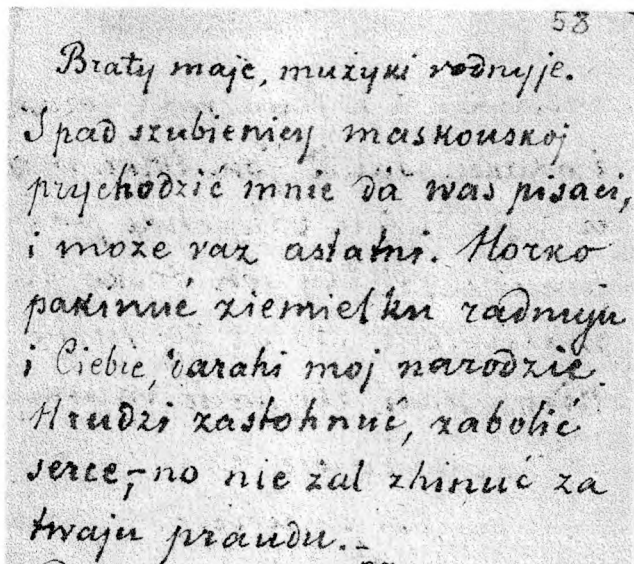 58
Braty maje, mużyki rodnyje.
S pad szubienicy maskouskoj
prychodzić mnie da was pisaci,
i może raz astatni. Horko
pakinuć ziemielku radnuju
i Ciebie, darahi moj narodzie.
Hrudzi zastohnuć, zabolić
serce,– no nie żal zhinuć za
twaju praudu.–